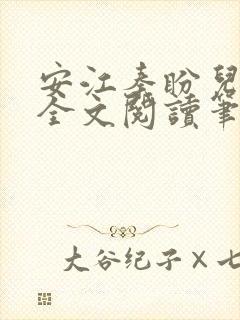 安江秦盼兒
全文閱讀筆
大谷纪子×七